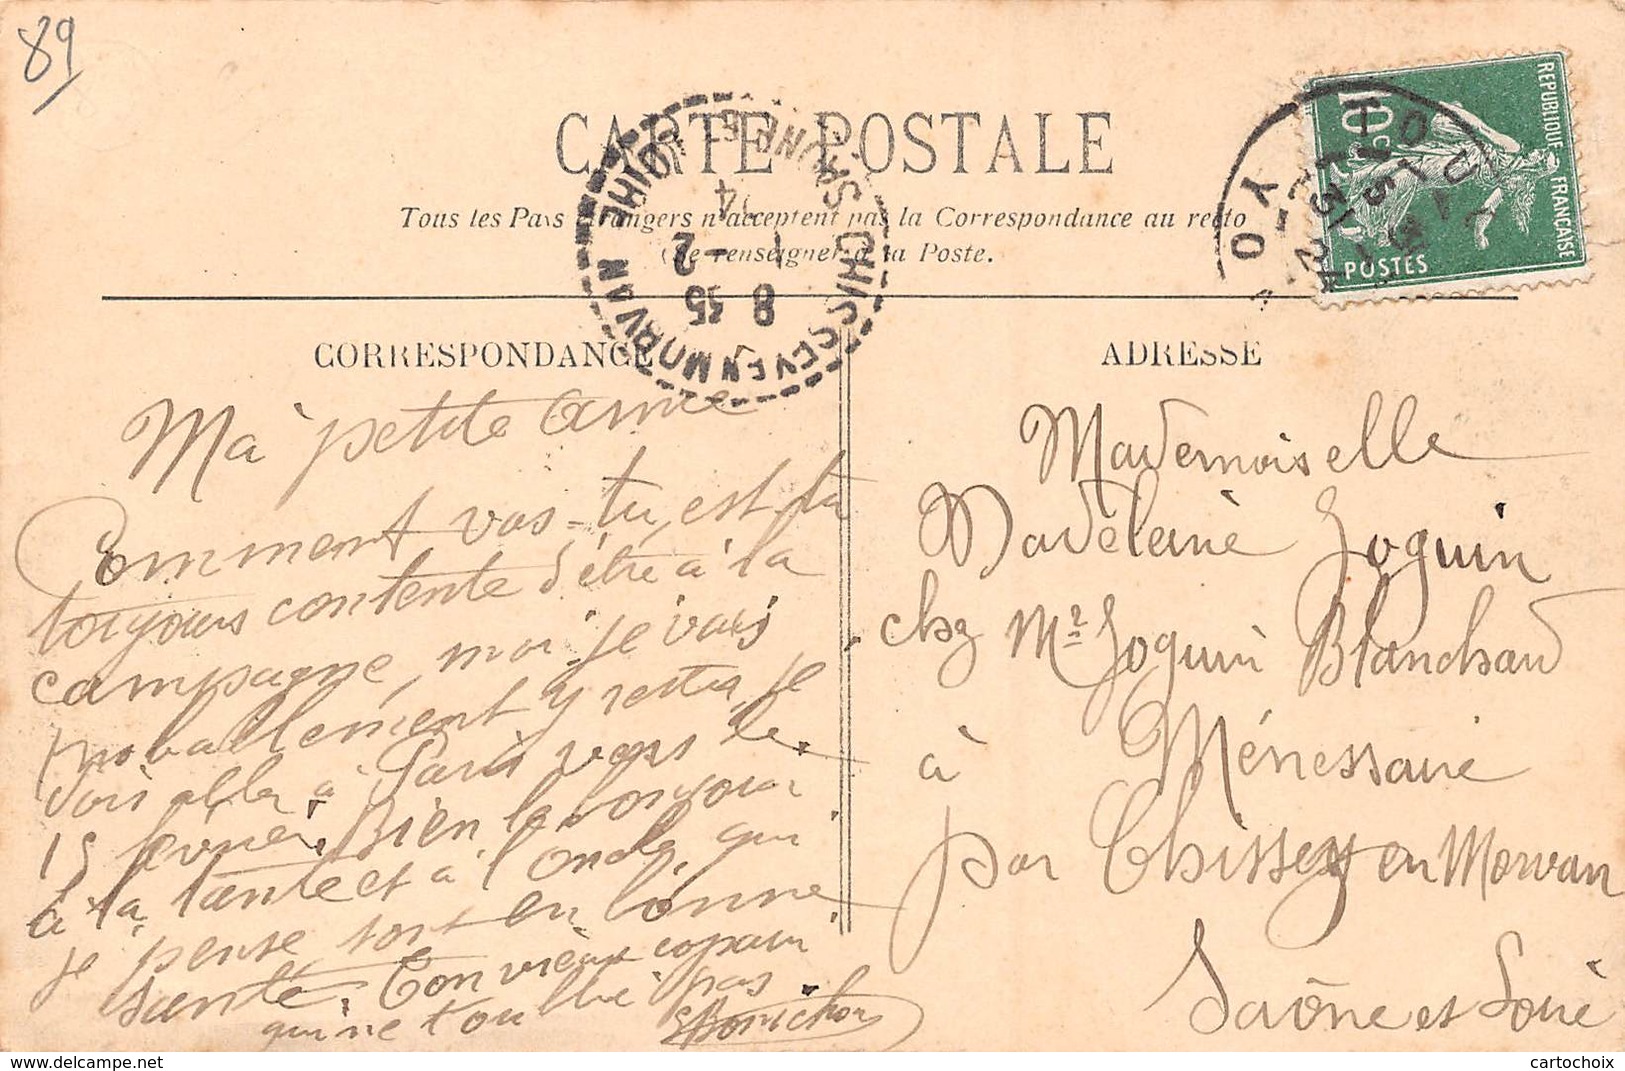 89
CARTE POSTALE
Tous les Pays étrangers n'acceptent pas la Correspondance au recto
(Se renseigner à la Poste.
REPUBLIQUE FRANÇAISE
10c
POSTES
CHISSEY EN MORVAN
SAONE-ET-
8 35
1 -2
24
CORRESPONDANCE
ADRESSE
Ma petite amie
Comment vas-tu, est tu
toujours contente d'être à la
campagne, moi je vais
provablement y rester, je
dois aller à Paris vers le
15 février. Bien le bonjour
à la tante et à l'oncle, qui
je pense sont en bonne
santé. Ton vieux copain
qui ne t'oublie pas
Mademoiselle
Madeleine Joquin
chez Mr Joquin Blanchard
à Ménessaire
par Chissey en Morvan
Saône et Loire
cartochoix